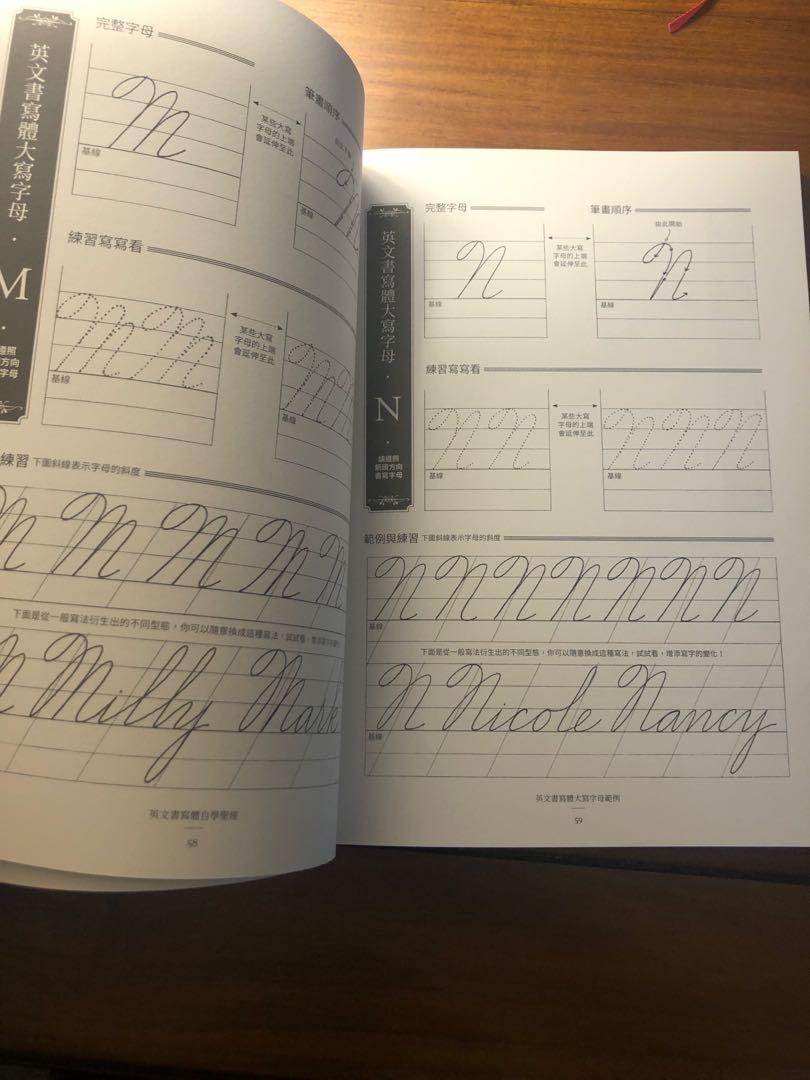 英文書寫體大寫字母
・
M
・
遵照
方向
字母
完整字母
m
基線
某些大寫
字母的上端
會延伸至此
筆畫順序
基線
練習寫寫看
m m
基線
某些大寫
字母的上端
會延伸至此
基線
練習 下圖斜線表示字母的斜度
m m m m m
下面是從一般寫法衍生出的不同型態,你可以隨意換成這種寫法,試試看,增添寫字的變化!
m Milly Mark
英文書寫體自學聖經
58
英文書寫體大寫字母
・
N
・
請遵照
箭頭方向
書寫字母
完整字母
n
基線
某些大寫
字母的上端
會延伸至此
筆畫順序
由此開始
n
基線
練習寫寫看
n n
基線
某些大寫
字母的上端
會延伸至此
n n n
基線
範例與練習 下圖斜線表示字母的斜度
n n n n n n n
基線
下面是從一般寫法衍生出的不同型態,你可以隨意換成這種寫法,試試看,增添寫字的變化!
N Nicole Nancy
基線
英文書寫體大寫字母範例
59